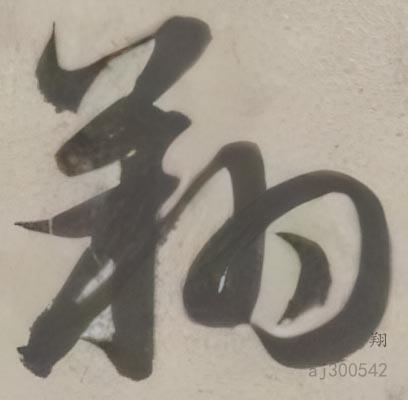 翔
翔
aj300542